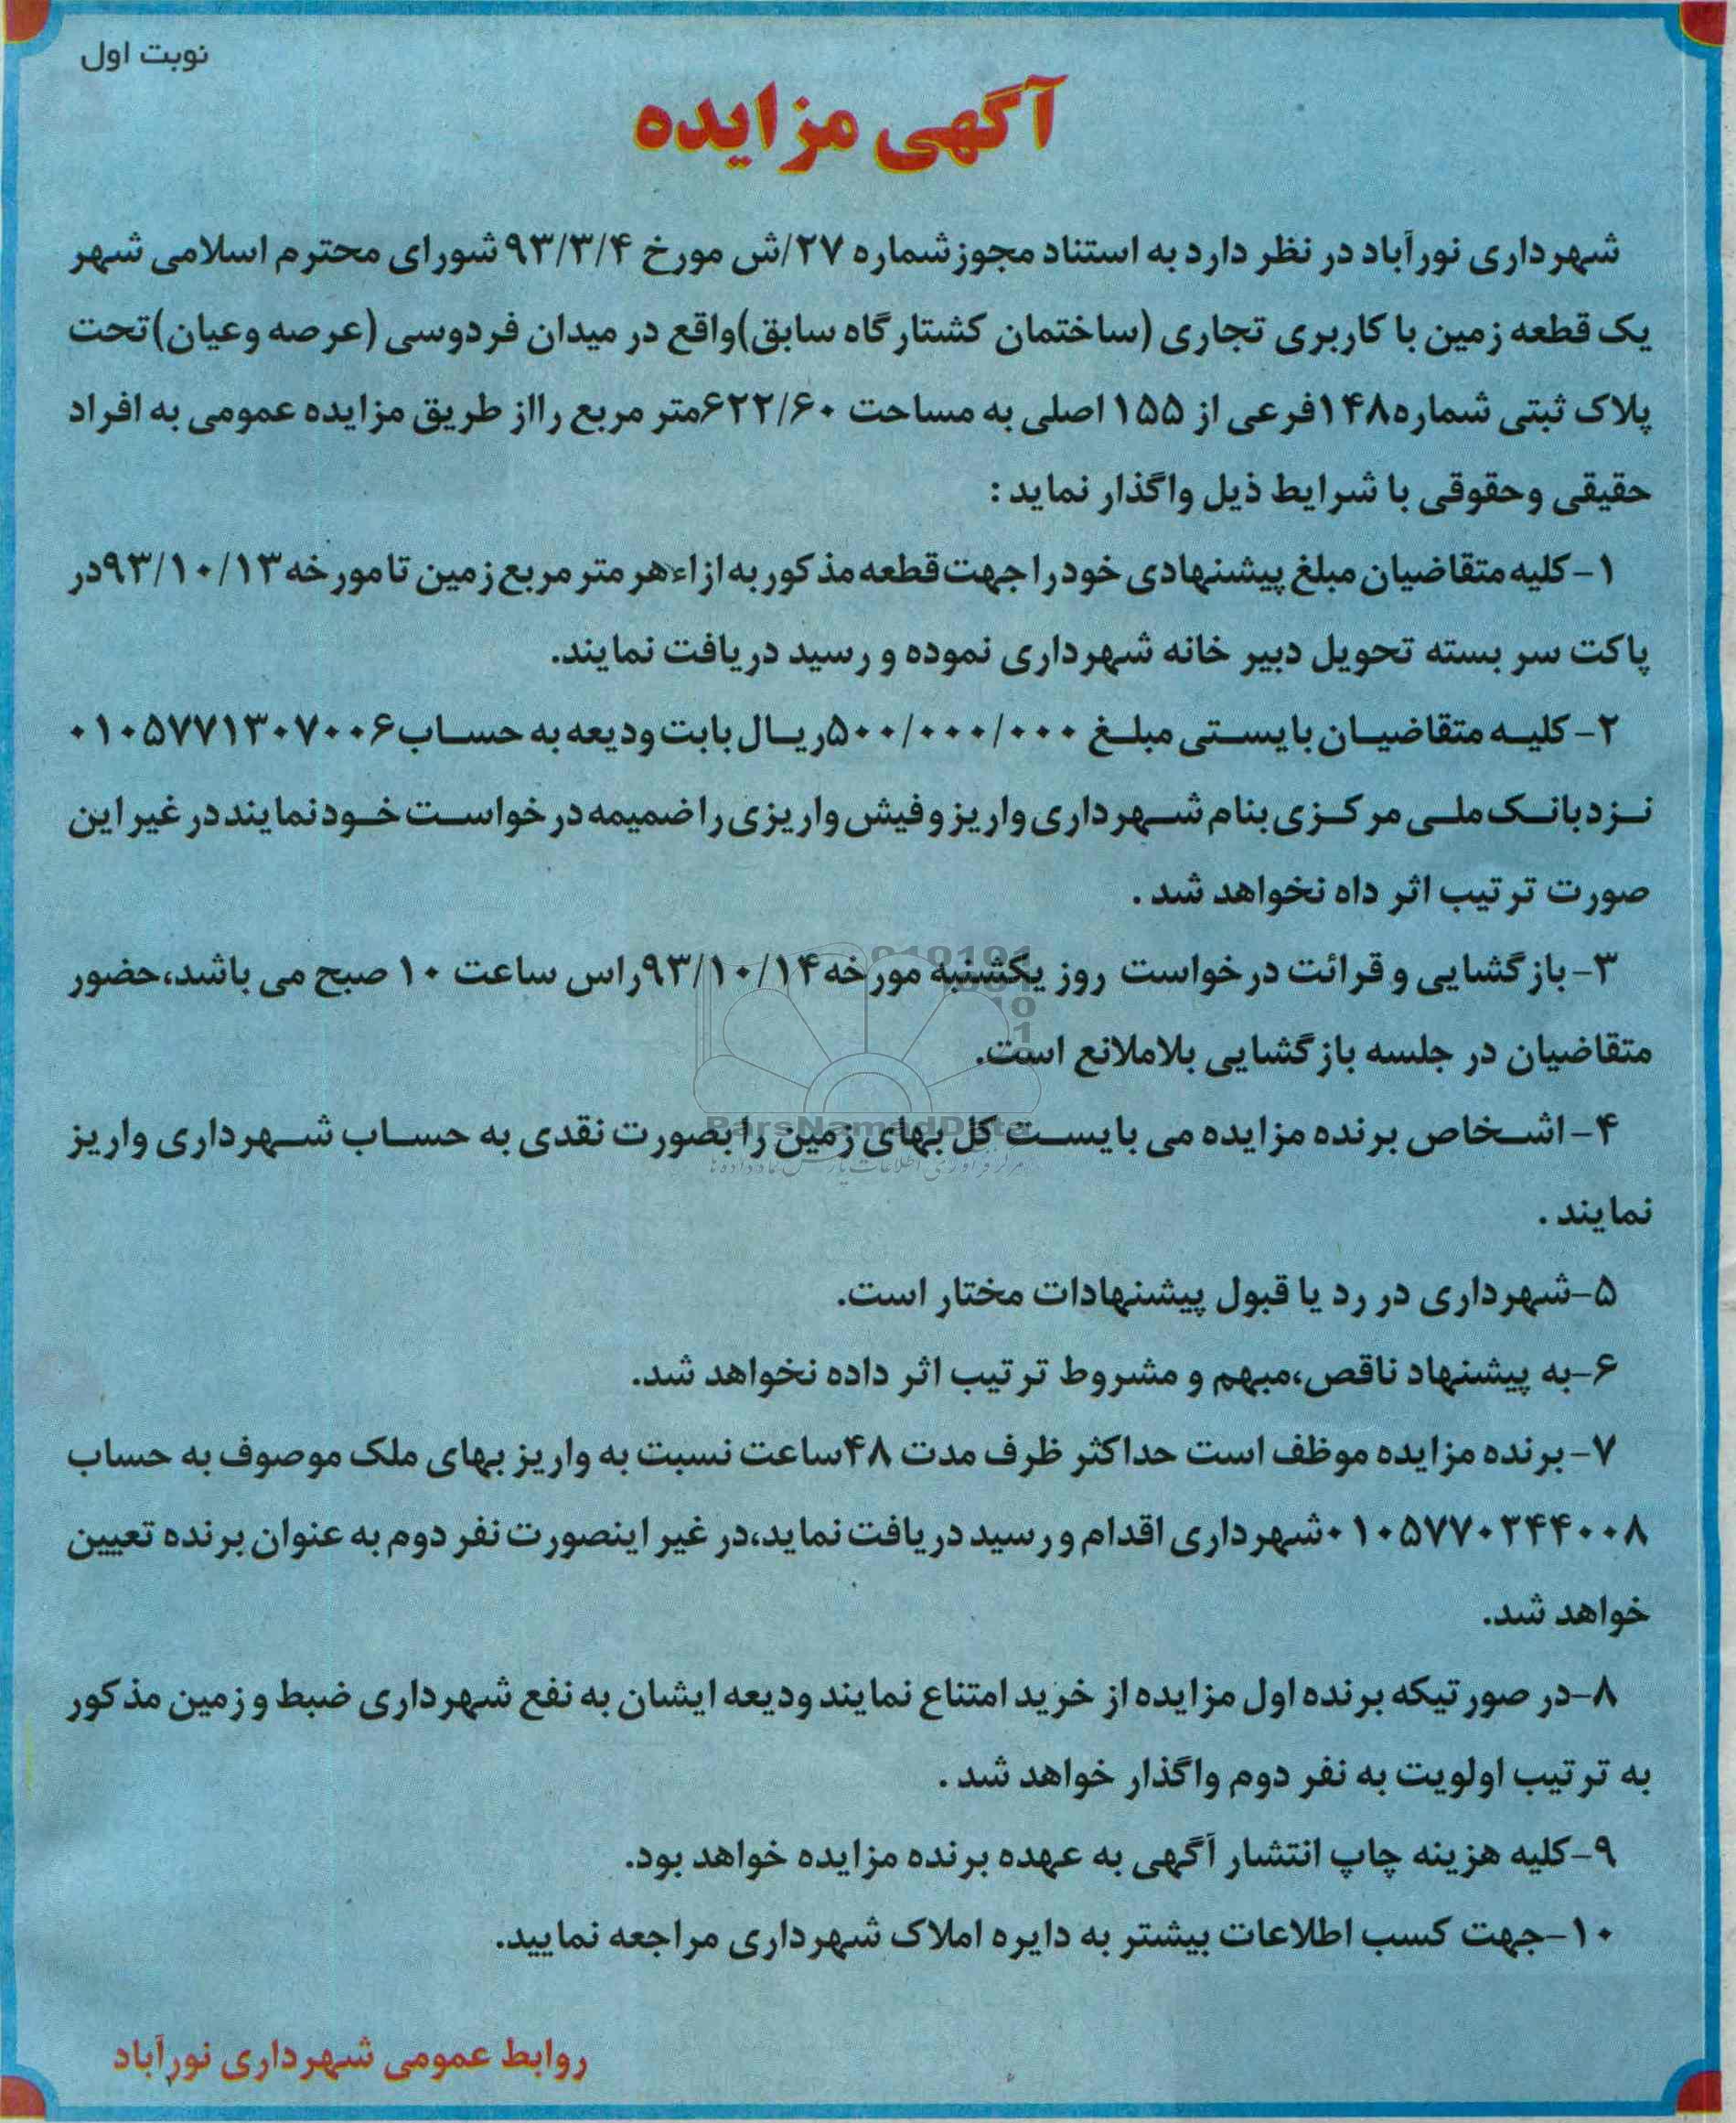 نوبت اول
آگهی مزایده
شهرداری نورآباد در نظر دارد به استناد مجوز شماره ۲۷/ش مورخ ۹۳/۳/۴ شورای محترم اسلامی شهر
یک قطعه زمین با کاربری تجاری (ساختمان کشتارگاه سابق)واقع در میدان فردوسی (عرصه وعیان)تحت
پلاک ثبتی شماره۱۴۸فرعی از ۱۵۵ اصلی به مساحت ۶۲۲/۶۰متر مربع رااز طریق مزایده عمومی به افراد
حقیقی وحقوقی با شرایط ذیل واگذار نماید :
۱- کلیه متقاضیان مبلغ پیشنهادی خود را جهت قطعه مذکور به ازاء هر متر مربع زمین تا مورخه ۹۳/۱۰/۱۳در
پاکت سر بسته تحویل دبیر خانه شهرداری نموده و رسید دریافت نمایند.
۲- کلیه متقاضیان بایستی مبلغ ۵۰۰/۰۰۰/۰۰۰ریال بابت ودیعه به حساب۰۱۰۵۷۷۱۳۰۷۰۰۶
نزد بانک ملی مرکزی بنام شهرداری واریز و فیش واریزی را ضمیمه درخواست خود نمایند در غیر این
صورت ترتیب اثر داه نخواهد شد .
۳- بازگشایی و قرائت درخواست روز یکشنبه مورخه ۹۳/۱۰/۱۴راس ساعت ۱۰ صبح می باشد،حضور
متقاضیان در جلسه بازگشایی بلاملانع است.
۴- اشخاص برنده مزایده می بایست کل بهای زمین را بصورت نقدی به حساب شهرداری واریز
نمایند .
۵-شهرداری در رد یا قبول پیشنهادات مختار است.
۶-به پیشنهاد ناقص،مبهم و مشروط ترتیب اثر داده نخواهد شد.
۷- برنده مزایده موظف است حداکثر ظرف مدت ۴۸ساعت نسبت به واریز بهای ملک موصوف به حساب
۰۱۰۵۷۷۰۲۴۴۰۰۸شهرداری اقدام و رسید دریافت نماید،در غیر اینصورت نفر دوم به عنوان برنده تعیین
خواهد شد.
۸-در صورتیکه برنده اول مزایده از خرید امتناع نمایند ودیعه ایشان به نفع شهرداری ضبط و زمین مذکور
به ترتیب اولویت به نفر دوم واگذار خواهد شد .
۹-کلیه هزینه چاپ انتشار آگهی به عهده برنده مزایده خواهد بود.
۱۰-جهت کسب اطلاعات بیشتر به دایره املاک شهرداری مراجعه نمایید.
روابط عمومی شهرداری نورآباد
ParsNamadData